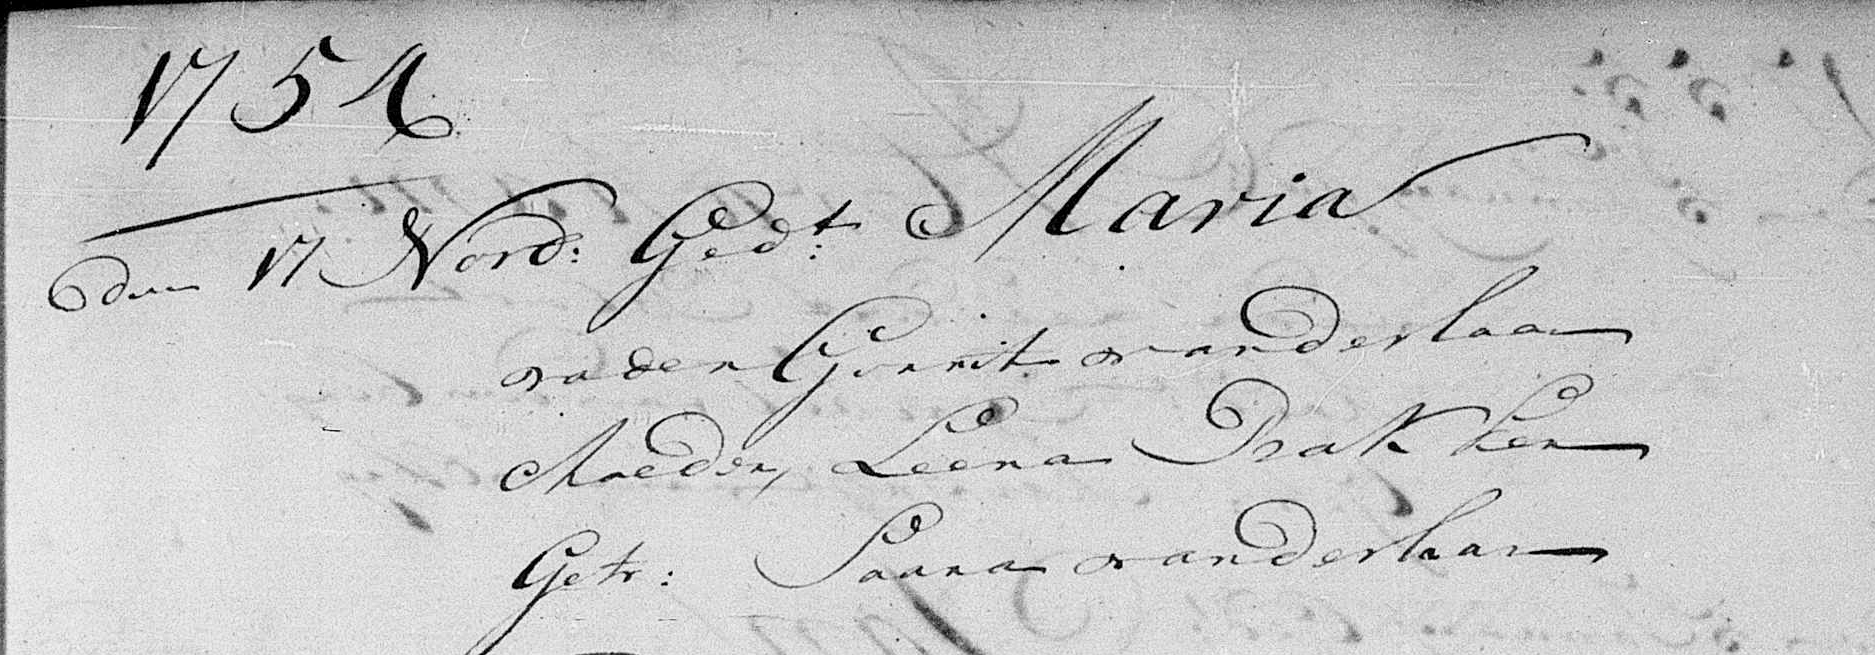 1754
den 17 Novb: Gedt: Maria
vader Gerrit vanderlaan
Moeder, Leena Brakken
Getr: Sanna vanderlaan